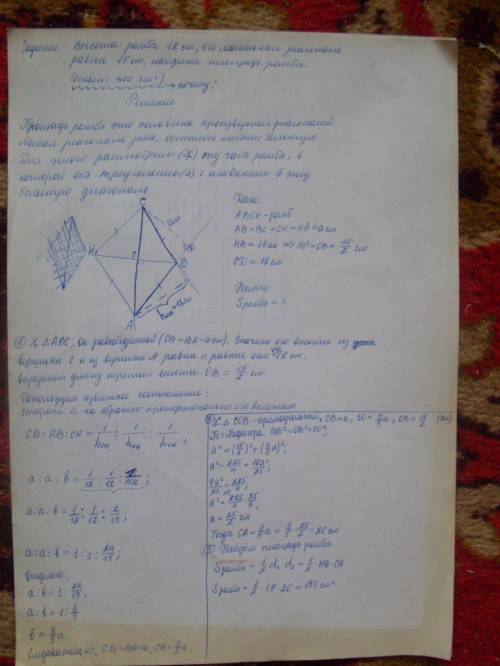 Задание Высота ромба 12 см, его маленькая диагональ
равна 15 см, найдите площадь ромба.
(ответ: 300 см²) → почему?
Решение
Площадь ромба это половина произведения диагоналей
Малая диагональ дана, осталось найти большую
Для этого рассмотрим (X) ту часть ромба, в
которой есть треугольник(Δ) с основанием в эту
большую диагональ
Дано:
ABCH - ромб
AB=BC=CH=HA=a см
HB=15 см => HO=OB=15/2 см
CD=12 см
Найти
Sромба = ?
C
H
O
B
A
12 см
① X Δ ABC. Он равнобедренный (CB=BA=a см). Значит его высоты из
вершины C и из вершины A равны и равны они 12 см.
Выразим длину третьей высоты: OB = 15/2 см.
Используем известное соотношение:
стороны Δ-ка обратно пропорциональны его высотам
CB:BA:CA = 1/h : 1/h : 1/h ;
a:a:b = 1/12 : 1/12 : 1/(15/2) ;
a:a:b = 1/12 : 1/12 : 2/15 ;
a:a:b = 1:1: 24/15 ;
Отсюда:
a:b = 1: 24/15 ;
a:b = 1: 8/5
b = 8/5 a
Следовательно, CB=BA=a; CA = 8/5 a.
② X Δ COB - прямоугольный, CB=a, CO = 4/5 a, OB = 15/2 (см)
По т. Пифагора CB²=OB²+CO²,
a² = (15/2)² + (4/5 a)²,
a² = 225/4 + 16a²/25 ;
9a²/25 = 225/4 ;
a² = 225/4 · 25/9 ;
a = 25/2 см
Тогда CA = 8/5 a = 8/5 · 25/2 = 20 см
③ Найдём площадь ромба
Sромба = 1/2 d₁ d₂ = 1/2 · HB · CA
Sромба = 1/2 · 15 · 20 = 150 см²